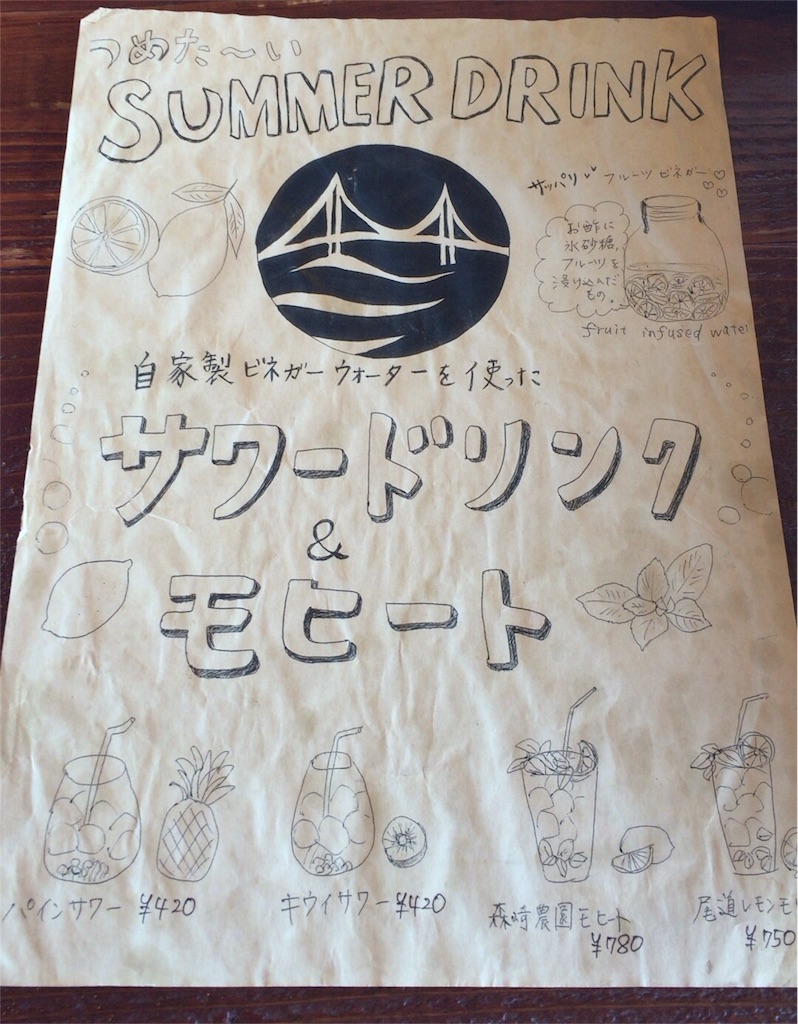 つめた〜い
SUMMER DRINK
サッパリ フルーツビネガー
お酢に
氷砂糖,
フルーツを
浸け込んだ
もの。
fruit infused water
自家製ビネガーウォーターを使った
サワードリンク
&
モヒート
パインサワー ¥420
キウイサワー ¥420
森崎農園モヒート
¥780
尾道レモンモ
¥750